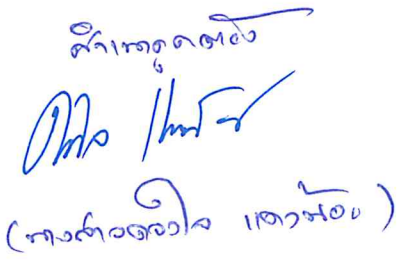 สำเนาถูกต้อง
(นางสาวดวงใจ แถวน้อย)